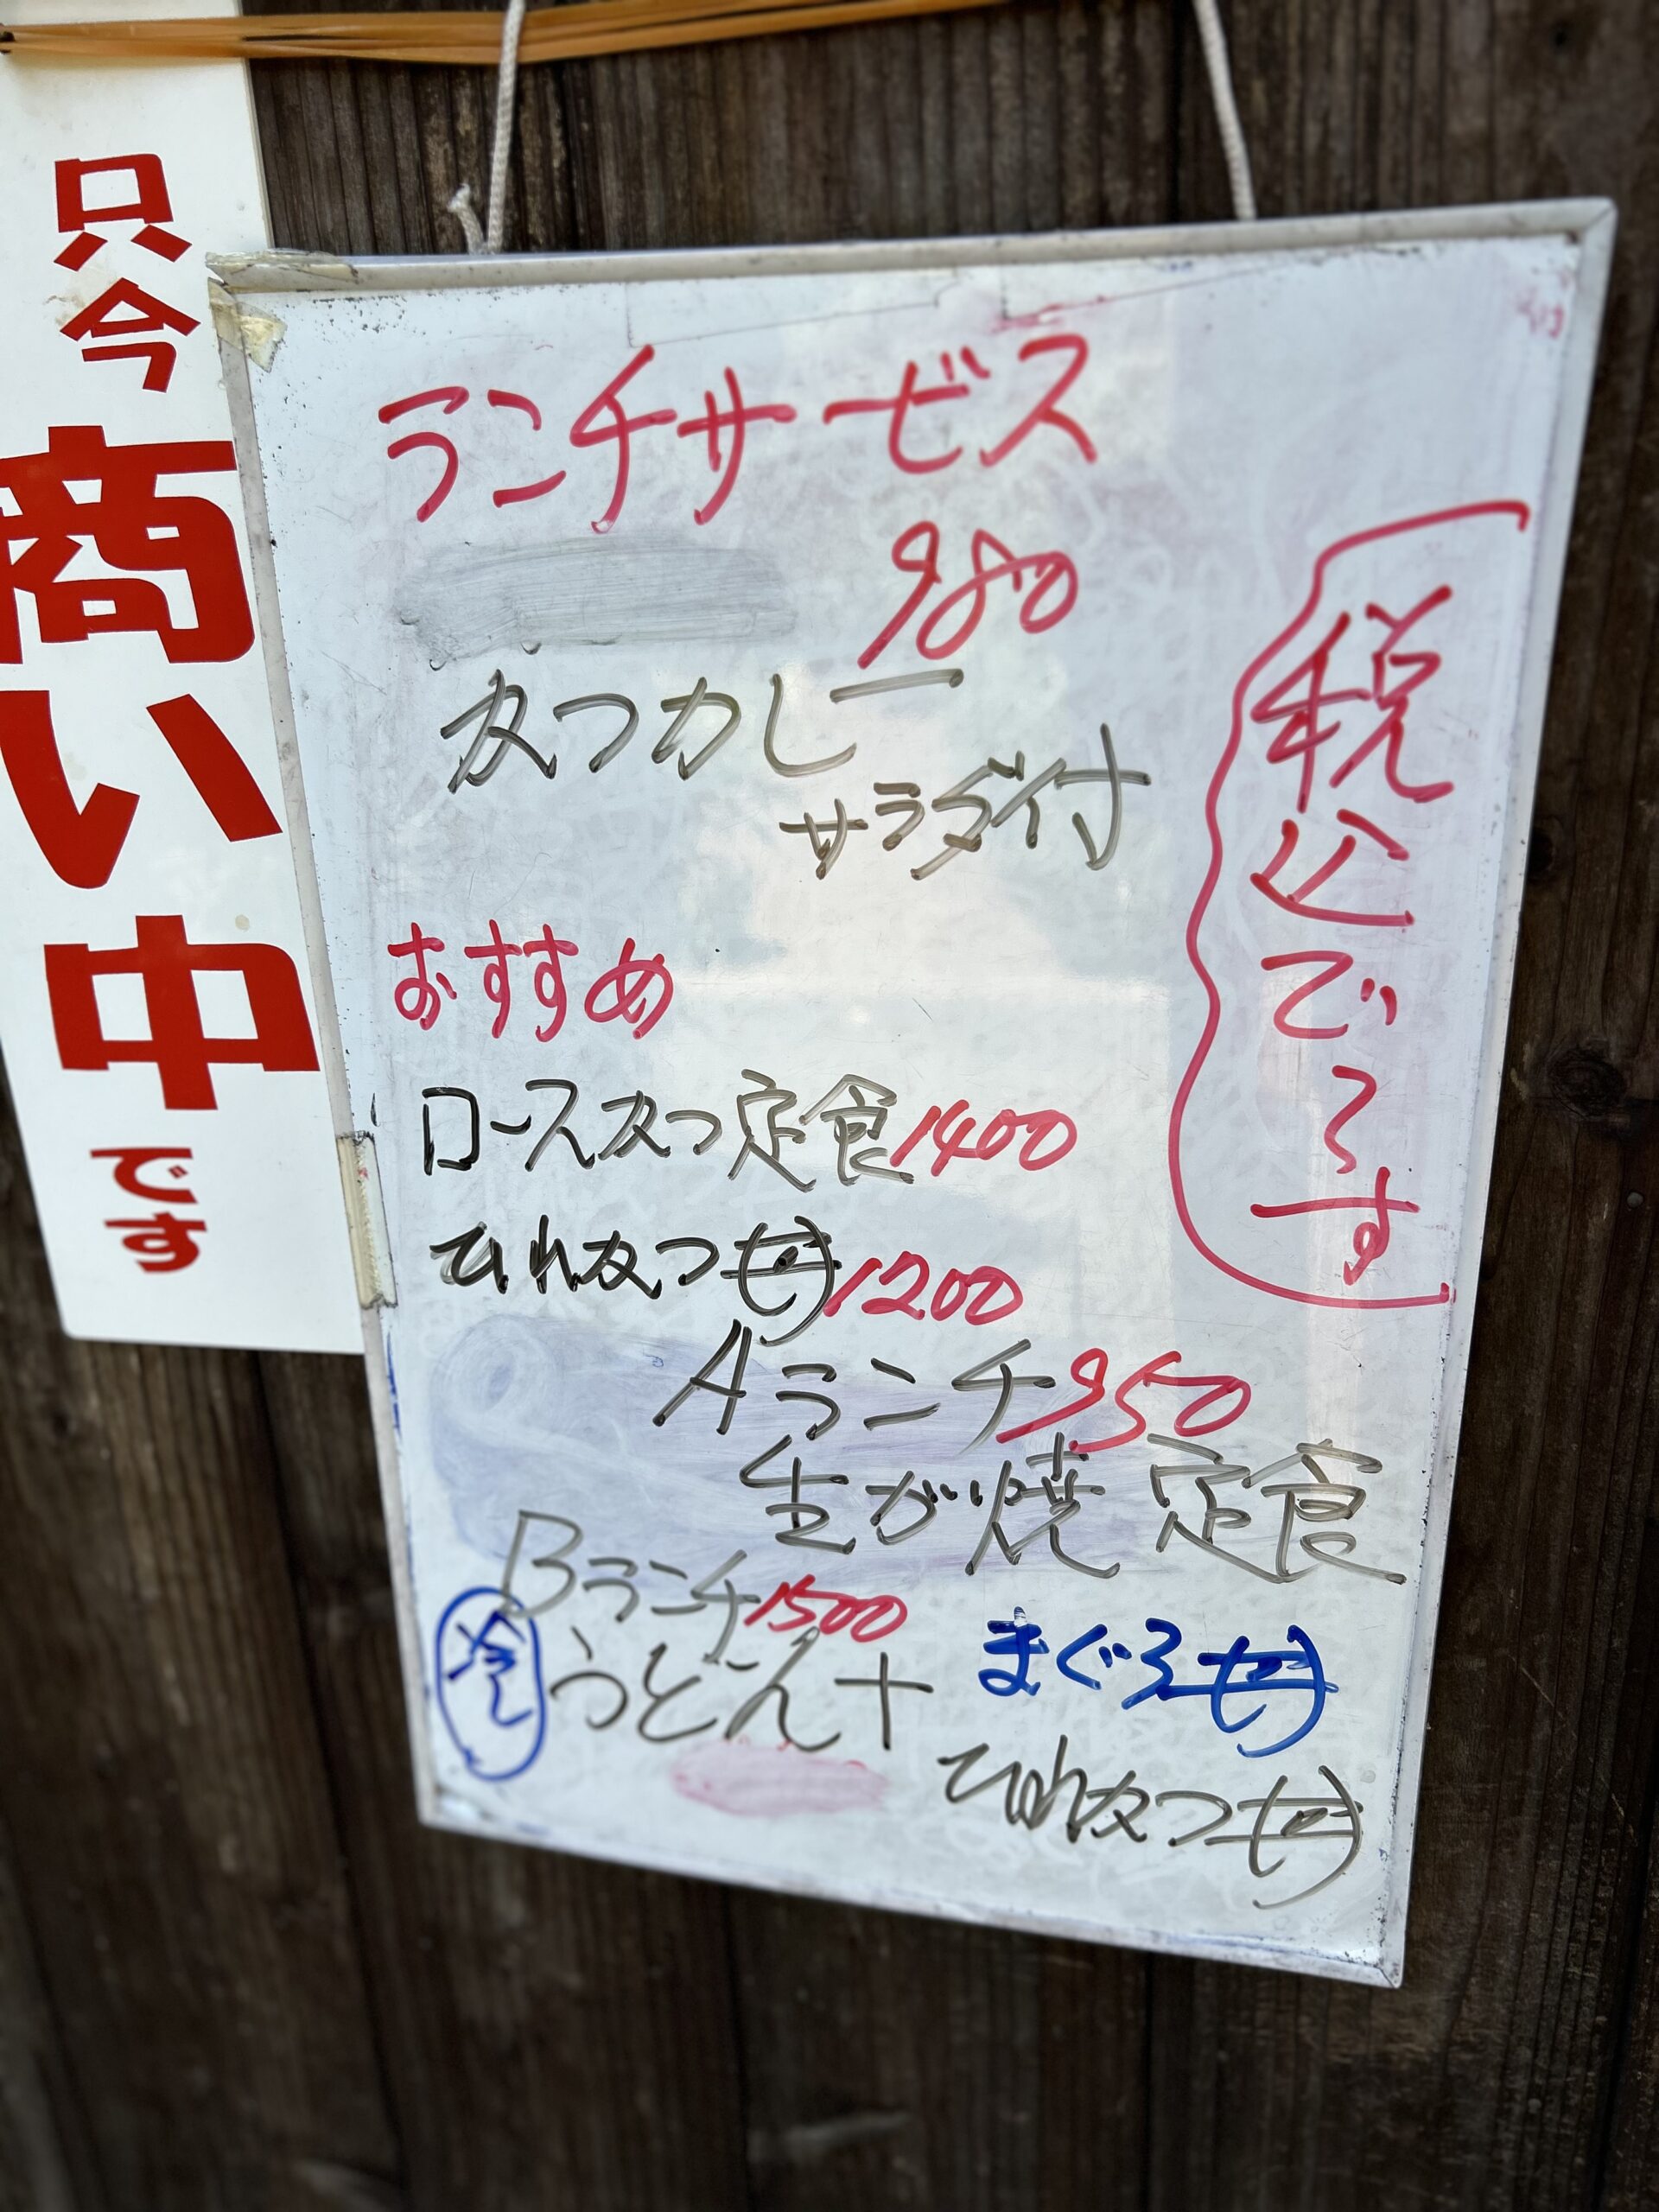 只今
商い中
です
ランチサービス
980
かつカレー
サラダ付
税込で〜す
おすすめ
ロースかつ定食1400
ひれかつ丼1200
Aランチ950
生が焼定食
Bランチ1500
冷しうどん+ まぐろ丼
ひれかつ丼